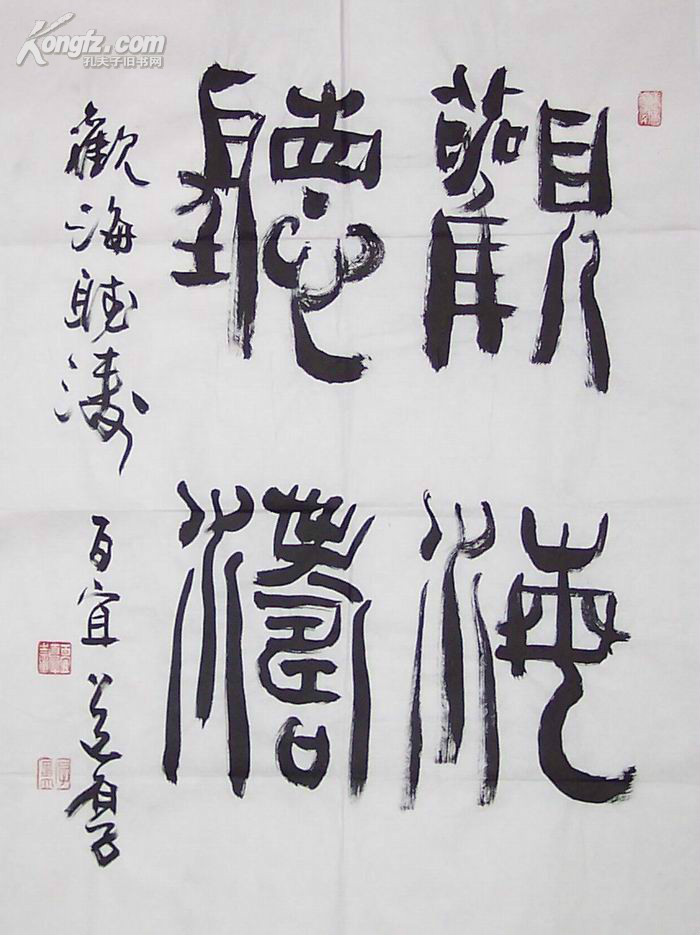 觀海
聽濤
觀海聽濤
百宜
Kongfz.com
孔夫子旧书网